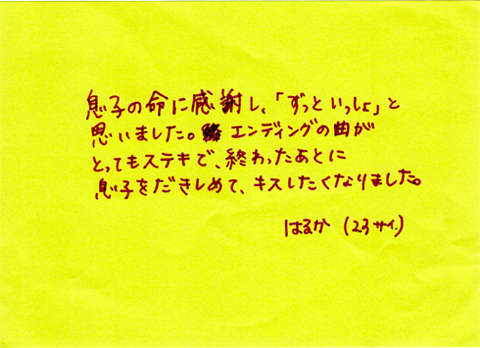 息子の命に感謝し、「ずっといっしょ」と
思いました。エンディングの曲が
とってもステキで、終わったあとに
息子をだきしめて、キスしたくなりました。
はるか (23サイ)